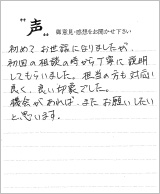 “声”
御意見・感想をお聞かせ下さい
初めてお世話になりましたが、
初回の相談の時から丁寧に説明
してもらいました。担当の方も対応が
良く、良い印象でした。
機会があれば、またお願いしたい
と思います。